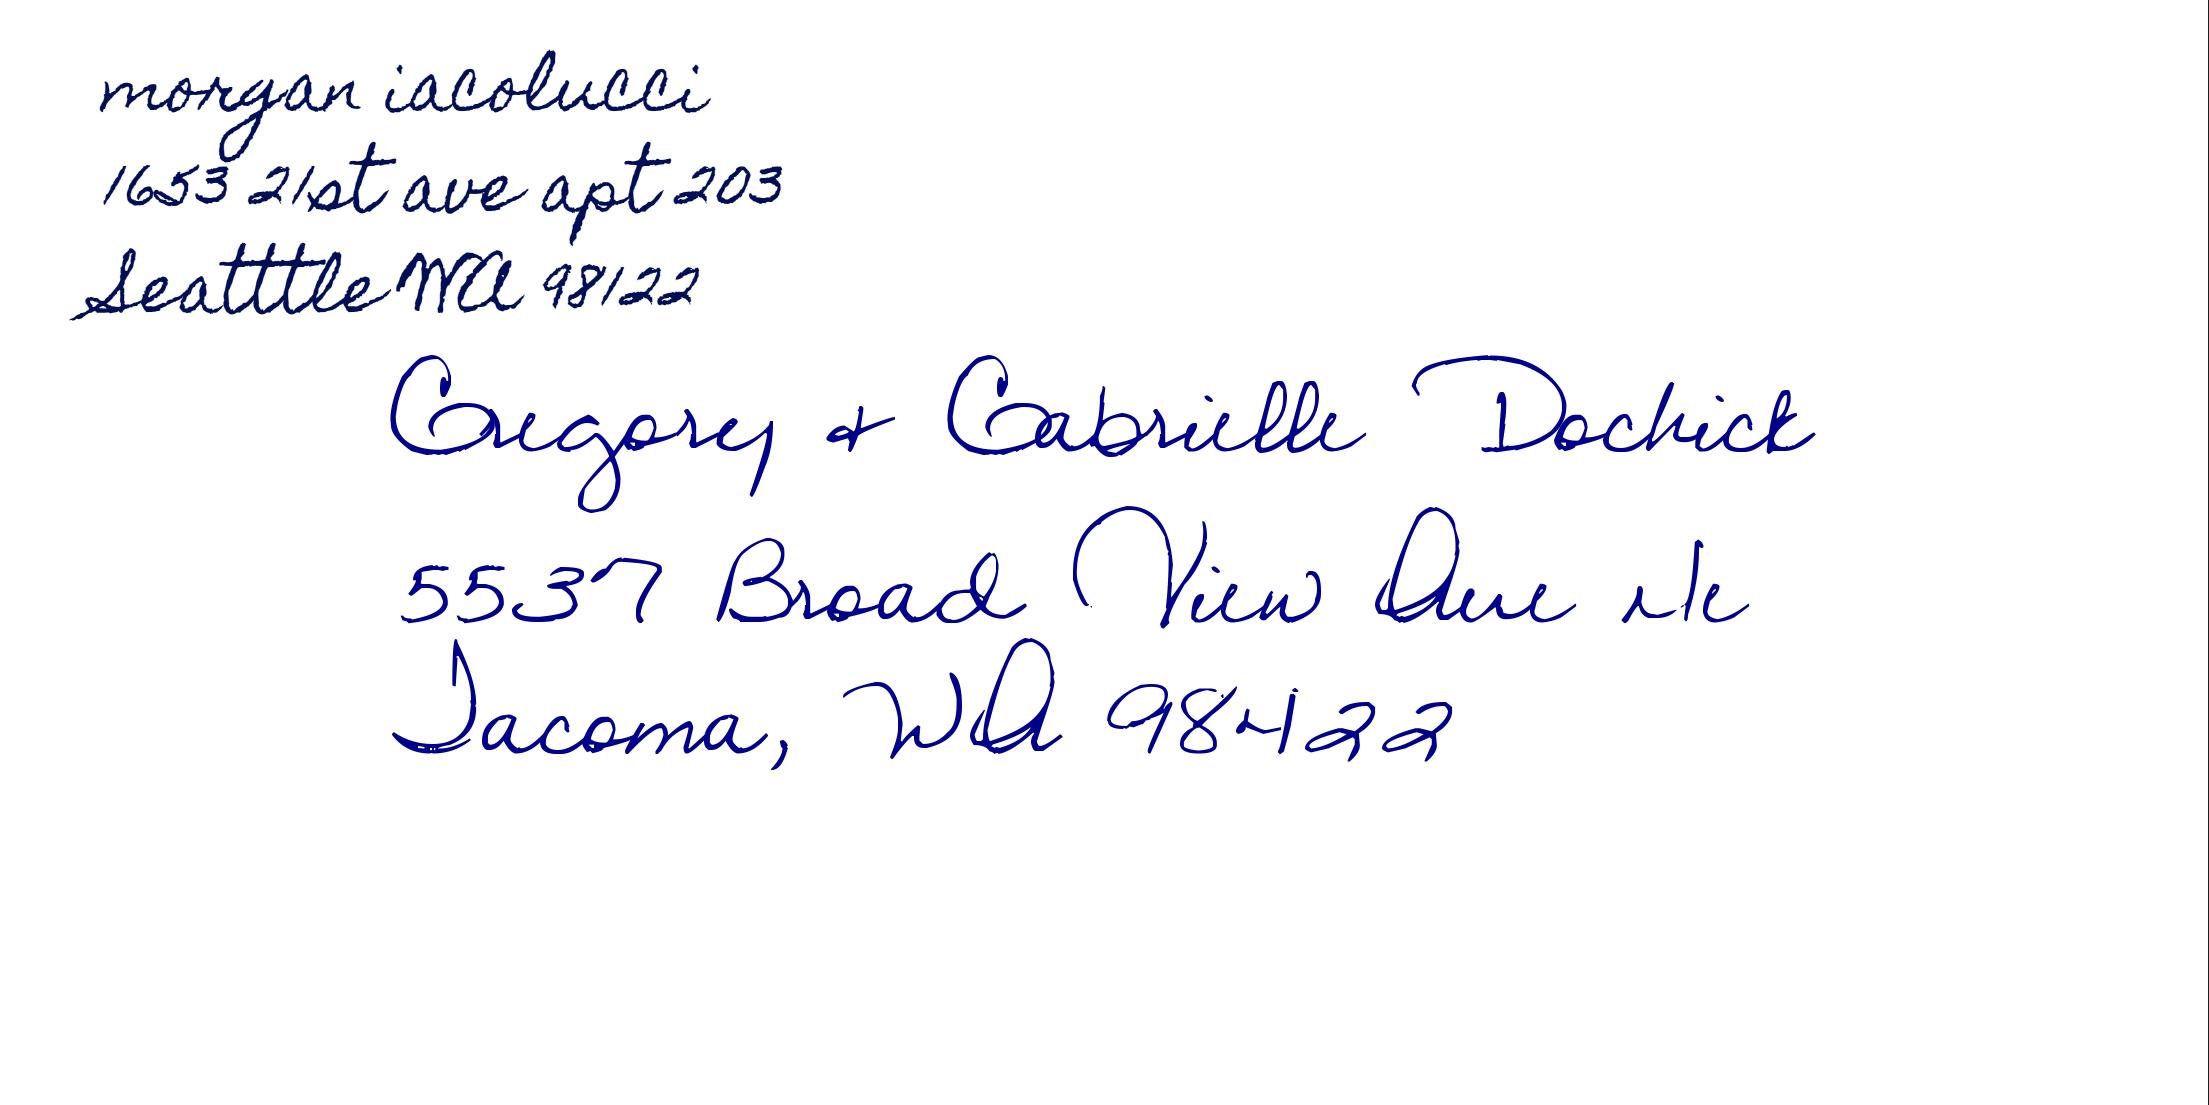 morgan iacolucci
1653 21st ave apt 203
Seatttle WA 98122
Gregory & Gabrielle Dochick
5537 Broad View Ave Ne
Tacoma, WA 98422